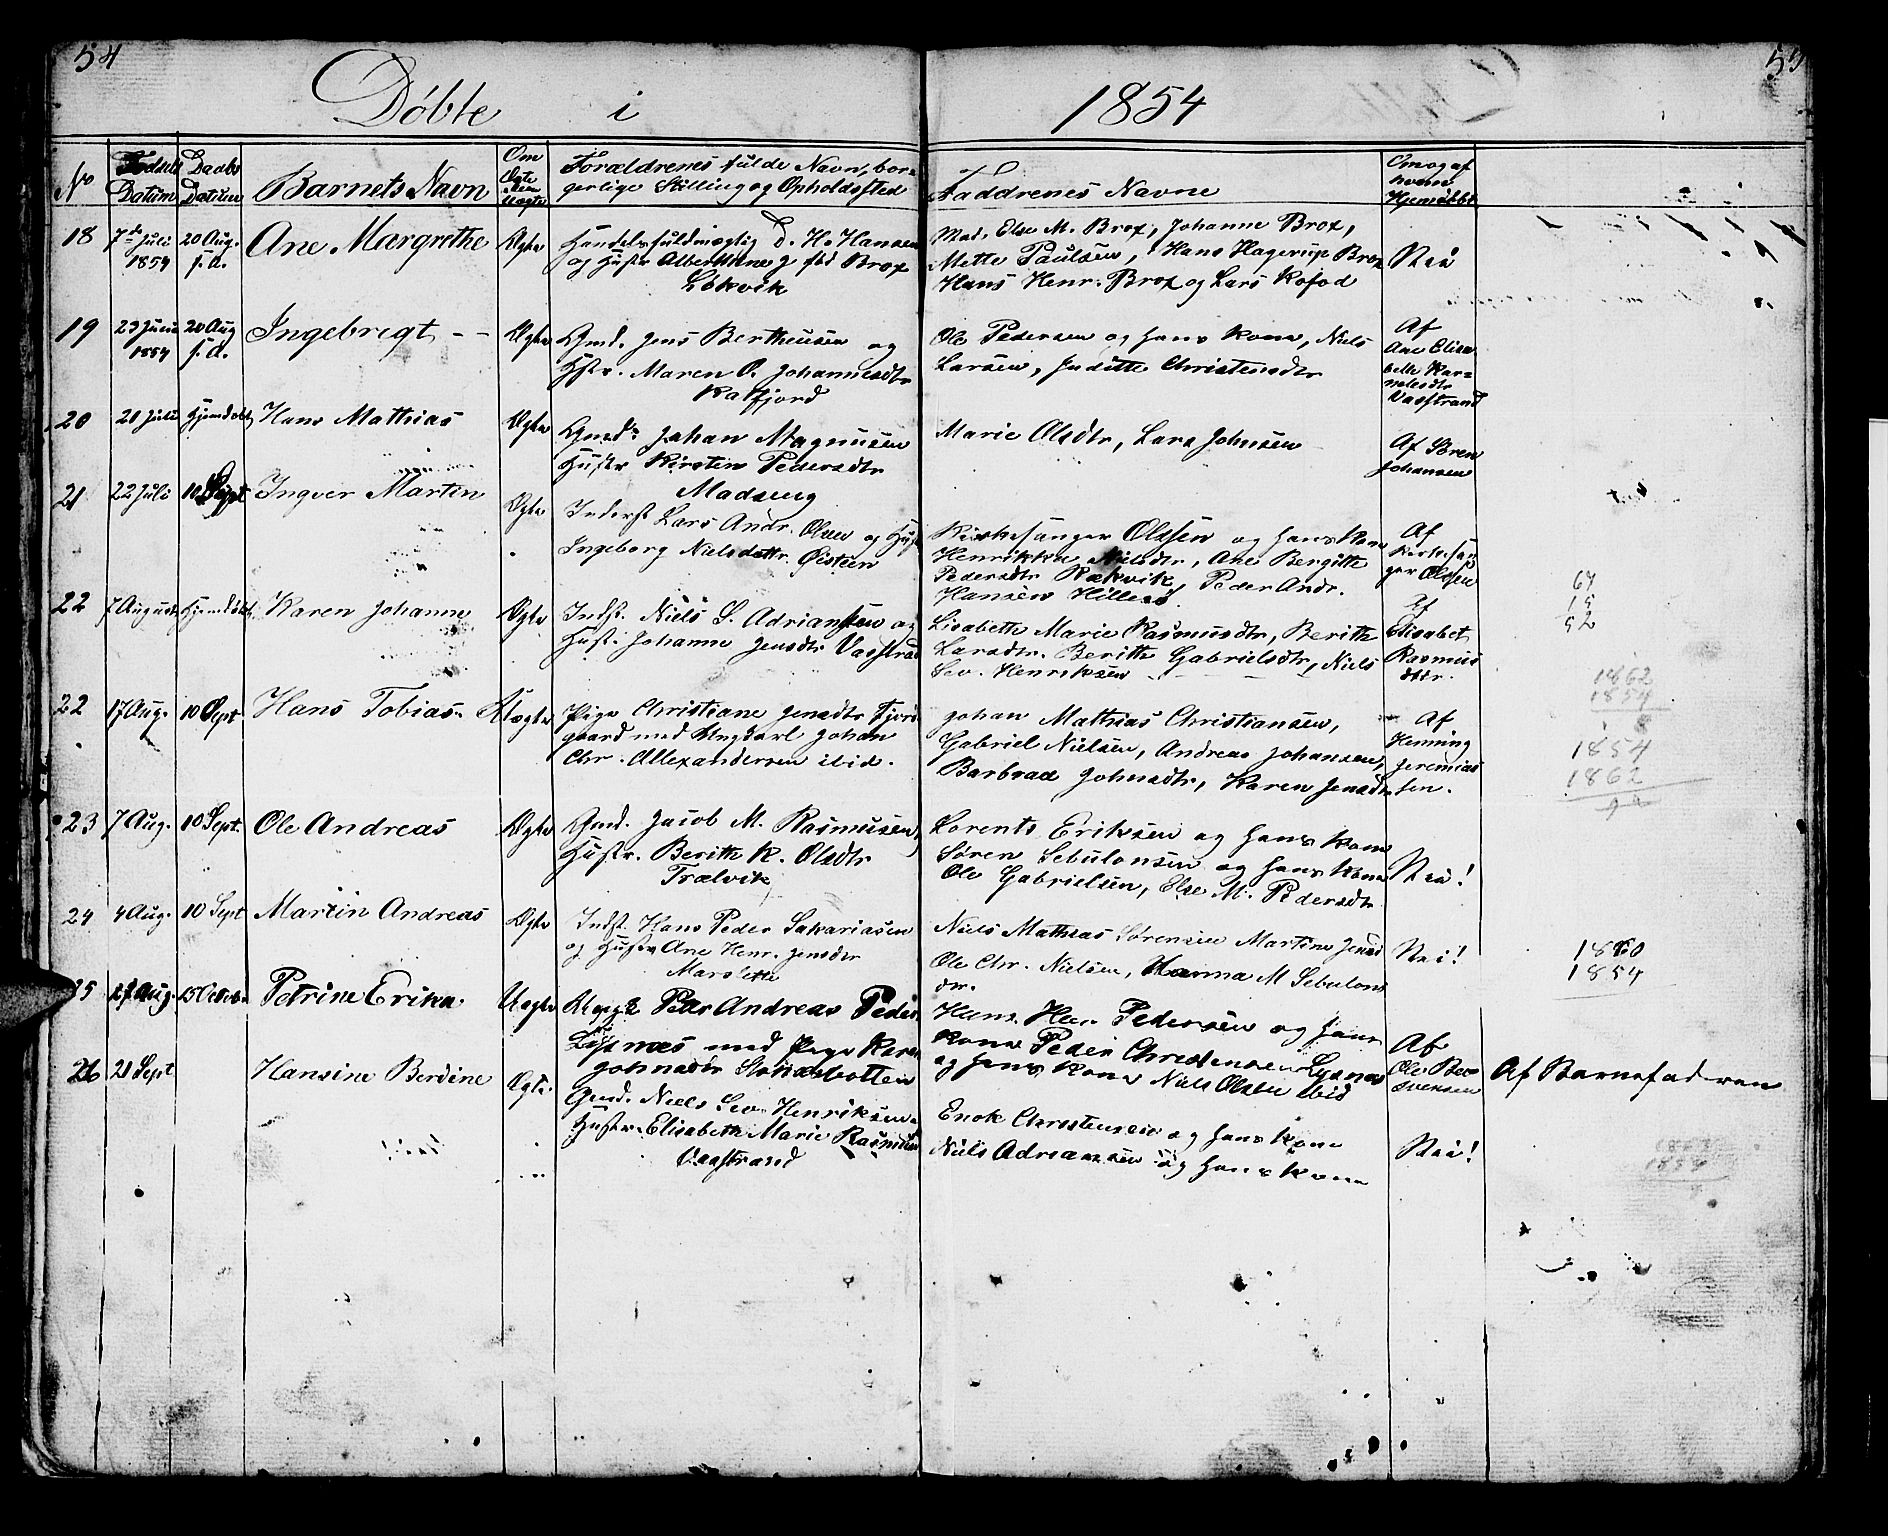 54
55
Döbte i 1854
No
Födsels Datum
Daabs Datum
Barnets Navn
Om Ægte eller Uægte
Forældrenes fulde Navn, bor=
gerlige Stilling og Opholdssted
Faddrenes Navne
Om og af hvem Hjemdöbt
18
7de Juli 1854
20 Aug. s. d.
Ane Margrethe
Ægte
Handelsfuldmægtig D. H. Hansen
og Hustr Alberthine J. föd Brox
Lökvik
Mad. Else M. Brox, Johanne Brox,
Mette Paulsen, Hans Hagerup Brox
Hans Henr. Brox og Lars Kofod
Nei
19
23 Juni 1854
20 Aug s. d.
Ingebregt
Ægte
Gmd. Jens Bertheusen og
Hstr. Maren O. Johannesdtr
Kattfjord
Ole Pedersen og hans Kone, Niels
Larsen, Juditte Christensdtr
Af
Ane Elisa
beth Kar=
nelesdtr
Vasstrand
20
20 Juli
Hjemdöbt
Hans Mathias
Ægte
Gmd. Johan Magnusen
Hustr Kirsten Pedersdtr
Madseng
Marie Olsdtr, Lars Johnsen
Af Sören
Johansen
21
22 Juli
10 Sept
Ingver Martin
Ægte
Inderst Lars Andr. Olsen og Hust
Ingeborg Nielsdattr. Öisteen
Kirkesanger Olssen og hans Kone
Henrikka Nielsdtr, Ane Bergitte
Pedersdtr Rækvik, Peder Andr.
Hansen Hillesö
Af
Kirkesan
ger Olssen
22
7 August
Hjemdöbt
Karen Johanne
Ægte
Indst. Niels S. Adriansen og
Hust. Johanne Jensdtr Vasstrand
Lisabeth Marie Rasmusdtr, Berith
Larsdtr. Beritte Gabrielsdtr, Niels
Sev. Henriksen
Af
Elisabet
Rasmus
dtr.
67
15
52
22
17 Aug.
10 Sept
Hans Tobias
Uægte
Pige Christiane Jensdtr Fjord
gaard med Ungkarl Johan
Chr. Allexandersen ibid.
Johan Mathias Christiansen,
Gabriel Nielsen, Andreas Johansen,
Barbraa Johnsdtr, Karen Jensdtr
Af
Henning
Jeremias
sen.
1862
1854
8
1854
1862
23
7 Aug.
10 Sept.
Ole Andreas
Ægte
Gmd. Jacob M. Rasmusen,
Hustr. Berith K. Olsdtr
Trælvik
Lorents Eriksen og hans Kone
Sören Sebulonsen og hans Kone
Ole Gabrielsen, Else M. Pedersdtr
Nei!
24
4 Aug.
10 Sept
Martin Andreas
Ægte
Indst. Hans Peder Sakariasen
og Hustru Ane Henr. Jensdtr
Marslette
Niels Mathias Sörensen Martine Jensd
Ole Chr. Nielsen, Hanna M Sebulons
dr.
Nei!
1880
1854
25
27 Aug.
15 Octob.
Petrine Erika
Uægte
Peder Andreas Peders
Lysnæs med Pige Karen
Johnsdtr
Hans Hen Pedersen og hans
Kone Peder Christensen Lysnes
og hans Kone Niels Olsen ibid
Af
Ole Be=
svensen
Af Barnefaderen
26
21 Sept
Hansine Berdine
Ægte
Gmd. Niels Sev. Henriksen
Hustr. Elisabeth Marie Rasmus
Vasstrand
Enok Christensen og hans Kone
Niels Adriansen og hans Kone
Nei!
1854